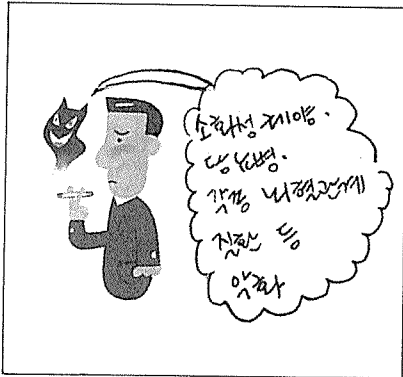 소화성 궤양.
당뇨병.
각종 뇌혈관계
질환 등
악화